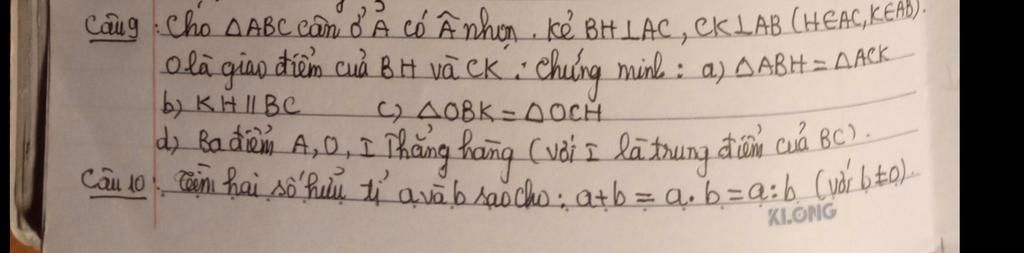 Câu 9: Cho △ABC cân ở A có Â nhọn. Kẻ BH⊥AC, CK⊥AB (H∈AC, K∈AB).
O là giao điểm của BH và CK. Chứng minh: a) △ABH = △ACK
b) KH // BC c) △OBK = △OCH
d) Ba điểm A, O, I Thẳng hàng (với I là trung điểm của BC).
Câu 10: Tìm hai số hữu tỉ a và b sao cho: a+b = a.b = a:b (với b≠0).
KLONG